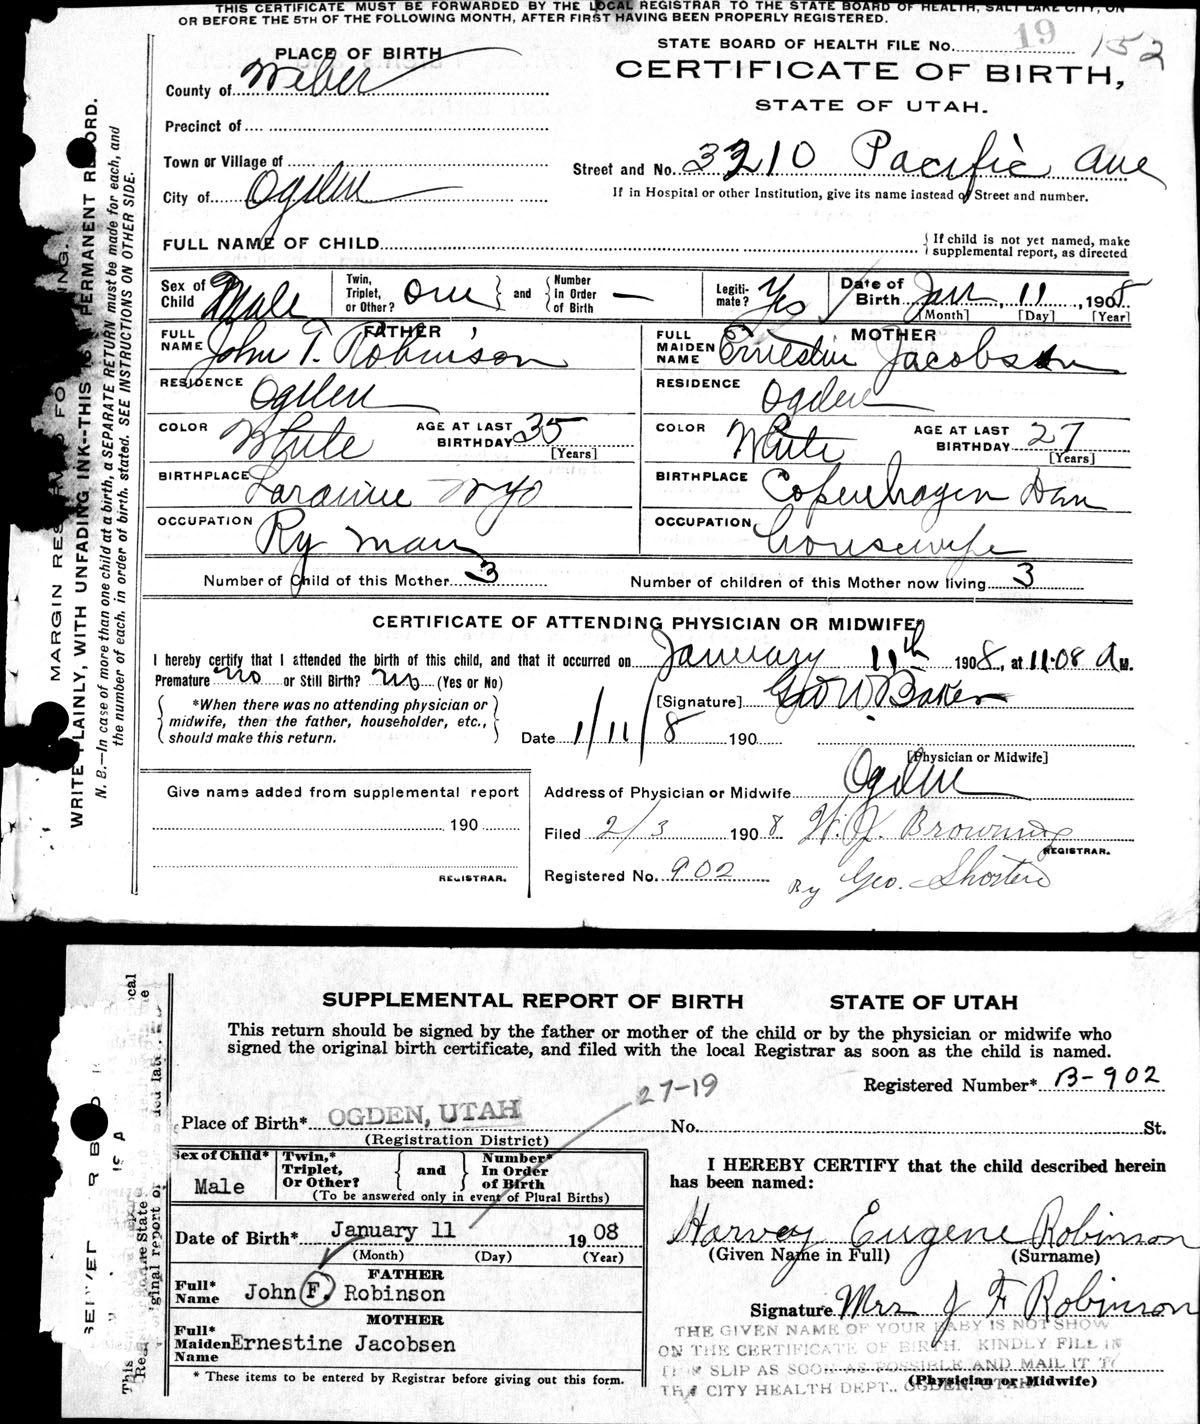 THIS CERTIFICATE MUST BE FORWARDED BY THE LOCAL REGISTRAR TO THE STATE BOARD OF HEALTH, SALT LAKE CITY, ON
OR BEFORE THE 5TH OF THE FOLLOWING MONTH, AFTER FIRST HAVING BEEN PROPERLY REGISTERED.
STATE BOARD OF HEALTH FILE No. 19 152
PLACE OF BIRTH
CERTIFICATE OF BIRTH,
STATE OF UTAH.
County of Weber
Precinct of
Town or Village of
Street and No. 3210 Pacific Ave
City of Ogden
If in Hospital or other Institution, give its name instead of Street and number.
FULL NAME OF CHILD
If child is not yet named, make
supplemental report, as directed
Sex of Child Male
Twin, Triplet, or Other? One and Number in Order of Birth —
Legiti-mate? Yes
Date of Birth Jan 11, 1908
[Month] [Day] [Year]
FATHER
FULL NAME John T. Robinson
MOTHER
FULL MAIDEN NAME Ernestine Jacobsen
RESIDENCE Ogden
RESIDENCE Ogden
COLOR White AGE AT LAST BIRTHDAY 35 [Years]
COLOR White AGE AT LAST BIRTHDAY 27 [Years]
BIRTHPLACE Laramie Wyo
BIRTHPLACE Copenhagen Den
OCCUPATION Ry man
OCCUPATION housewife
Number of Child of this Mother 3
Number of children of this Mother now living 3
CERTIFICATE OF ATTENDING PHYSICIAN OR MIDWIFE
I hereby certify that I attended the birth of this child, and that it occurred on January 11th 1908, at 11:08 A M.
Premature no or Still Birth? no (Yes or No)
*When there was no attending physician or
midwife, then the father, householder, etc.,
should make this return.
[Signature] Geo W Baker
Date 1/11/8 190
[Physician or Midwife]
Give name added from supplemental report
190
REGISTRAR.
Address of Physician or Midwife Ogden
Filed 2/3 1908 W. J. Browning
REGISTRAR.
Registered No. 902 By Geo. Shorten
MARGIN RESERVED FOR BINDING.
WRITE PLAINLY, WITH UNFADING INK--THIS IS A PERMANENT RECORD.
N. B.—In case of more than one child at a birth, a SEPARATE RETURN must be made for each, and
the number of each, in order of birth, stated. SEE INSTRUCTIONS ON OTHER SIDE.
SUPPLEMENTAL REPORT OF BIRTH STATE OF UTAH
This return should be signed by the father or mother of the child or by the physician or midwife who
signed the original birth certificate, and filed with the local Registrar as soon as the child is named.
27-19
Registered Number* B-902
Place of Birth* OGDEN, UTAH No. St.
(Registration District)
Sex of Child* Male
Twin,* Triplet, Or Other? and Number* In Order of Birth
(To be answered only in event of Plural Births)
Date of Birth* January 11 1908
(Month) (Day) (Year)
FATHER
Full* Name John F. Robinson
MOTHER
Full* Maiden Name Ernestine Jacobsen
* These items to be entered by Registrar before giving out this form.
I HEREBY CERTIFY that the child described herein
has been named:
Harvey Eugene Robinson
(Given Name in Full) (Surname)
Signature Mrs J F Robinson
(Physician or Midwife)
THE GIVEN NAME OF YOUR BABY IS NOT SHOW
ON THE CERTIFICATE OF BIRTH. KINDLY FILL IN
THIS SLIP AS SOON AS POSSIBLE AND MAIL IT TO
THE CITY HEALTH DEPT., OGDEN, UTAH